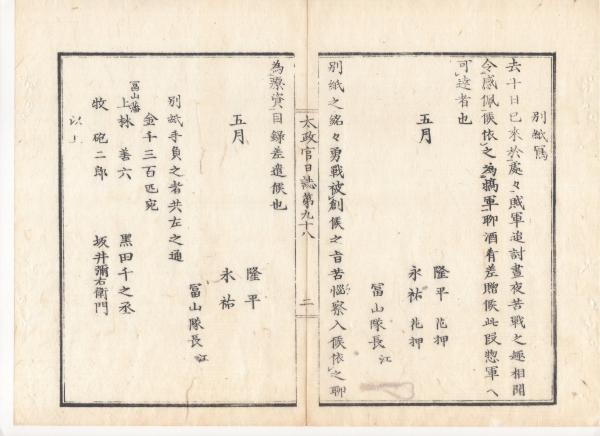 別紙寫
去十日已來於處々賊軍追討晝夜苦戰之趣相聞
令感佩候依之為犒軍聊酒肴差贈候此段惣軍へ
可達者也
五月
隆平 花押
永祐 花押
冨山隊長 江
別紙之銘々勇戰被創候之旨苦惱察入候依之聊
太政官日誌第九十八
二
為療資目録差遣候也
五月
隆平
永祐
冨山隊長 江
別紙手負之者共左之通
金千三百匹宛
冨山藩
上林善六 黑田千之丞
牧砲二郎 坂井彌右衛門
以上